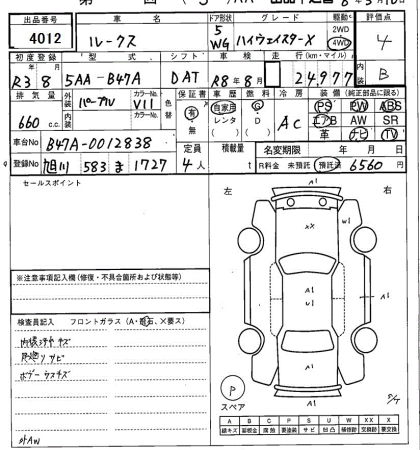 出品番号 車名 ドア形状 グレード 駆動 評価点
4012 ルークス 5 WG ハイウェイスターX 2WD 4WD 4
初度登録 型式 シフト 車検 走行(km・マイル) 内装
R3年8月 5AA-B47A DAT R8年8月 24,977 B
排気量 外装 カラーNo 色替 保証書 車歴 燃料 冷房 装備(純正部品に限る)
660c.c. パープル V11 有・無 自家用 レンタ ( ) G D ( ) AC PS PW ABS
内装 エアB AW SR
革 ナビ TV
車台No B47A-0012838 定員 積載量 名変期限 年 月 日
登録No 旭川 583 ま 1727 4人 t R料金 未預託 預託済 6560円
セールスポイント
左 右
※注意事項記入欄(修復・不具合箇所および状態等)
検査員記入 フロントガラス(A・飛石、X要ス)
内装コゲキズ
サビ
ボデーウスキズ
外AW
A1
XX
W1
A1
U1
A1
A1
A1
P
スペア
A B C P S U W X XX X
線キズ 要板金 腐蝕 要塗装 サビ 凹凸 補修跡 交換跡 要交換